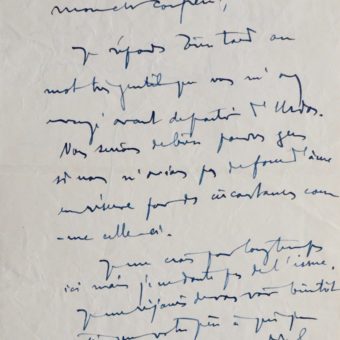 mon cher Confrère,
Je réponds bien tard au
mot très gentil que vous m'avez
envoyé avant de partir d'
Nous serions de bien pauvres gens
si nous n'avions pas de fond d'âme
en réserve pour des circonstances com
-me celle-ci.
Je me crois pour longtemps
ici mais je ne doute pas de l'issue.
Je me réjouis de vous voir bientôt